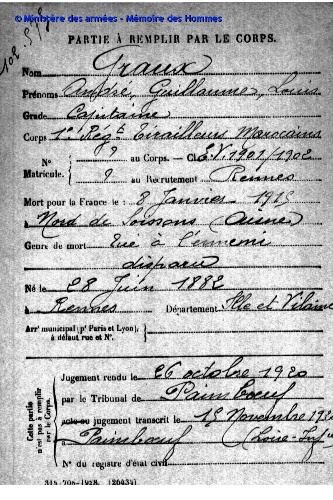 © Ministère des armées - Mémoire des Hommes
PARTIE À REMPLIR PAR LE CORPS.
Nom Graux
Prénoms André, Guillaume, Louis
Grade Capitaine
Corps 1er Régt Tirailleurs Marocains
N° ? au Corps. — Cl. E.V. 1901/1902
Matricule. ? au Recrutement Rennes
Mort pour la France le 8 Janvier 1915
à Nord de Soissons (Aisne)
Genre de mort Tué à l'ennemi
disparu
Né le 28 Juin 1882
à Rennes Département Ille et Vilaine
Arrt municipal (pr Paris et Lyon), à défaut rue et N°.
Cette partie n'est pas à remplir par le Corps.
Jugement rendu le 26 octobre 1920
par le Tribunal de Paimboeuf
acte ou jugement transcrit le 15 Novembre 1920
à Paimboeuf (Loire-Infre)
N° du registre d'état civil